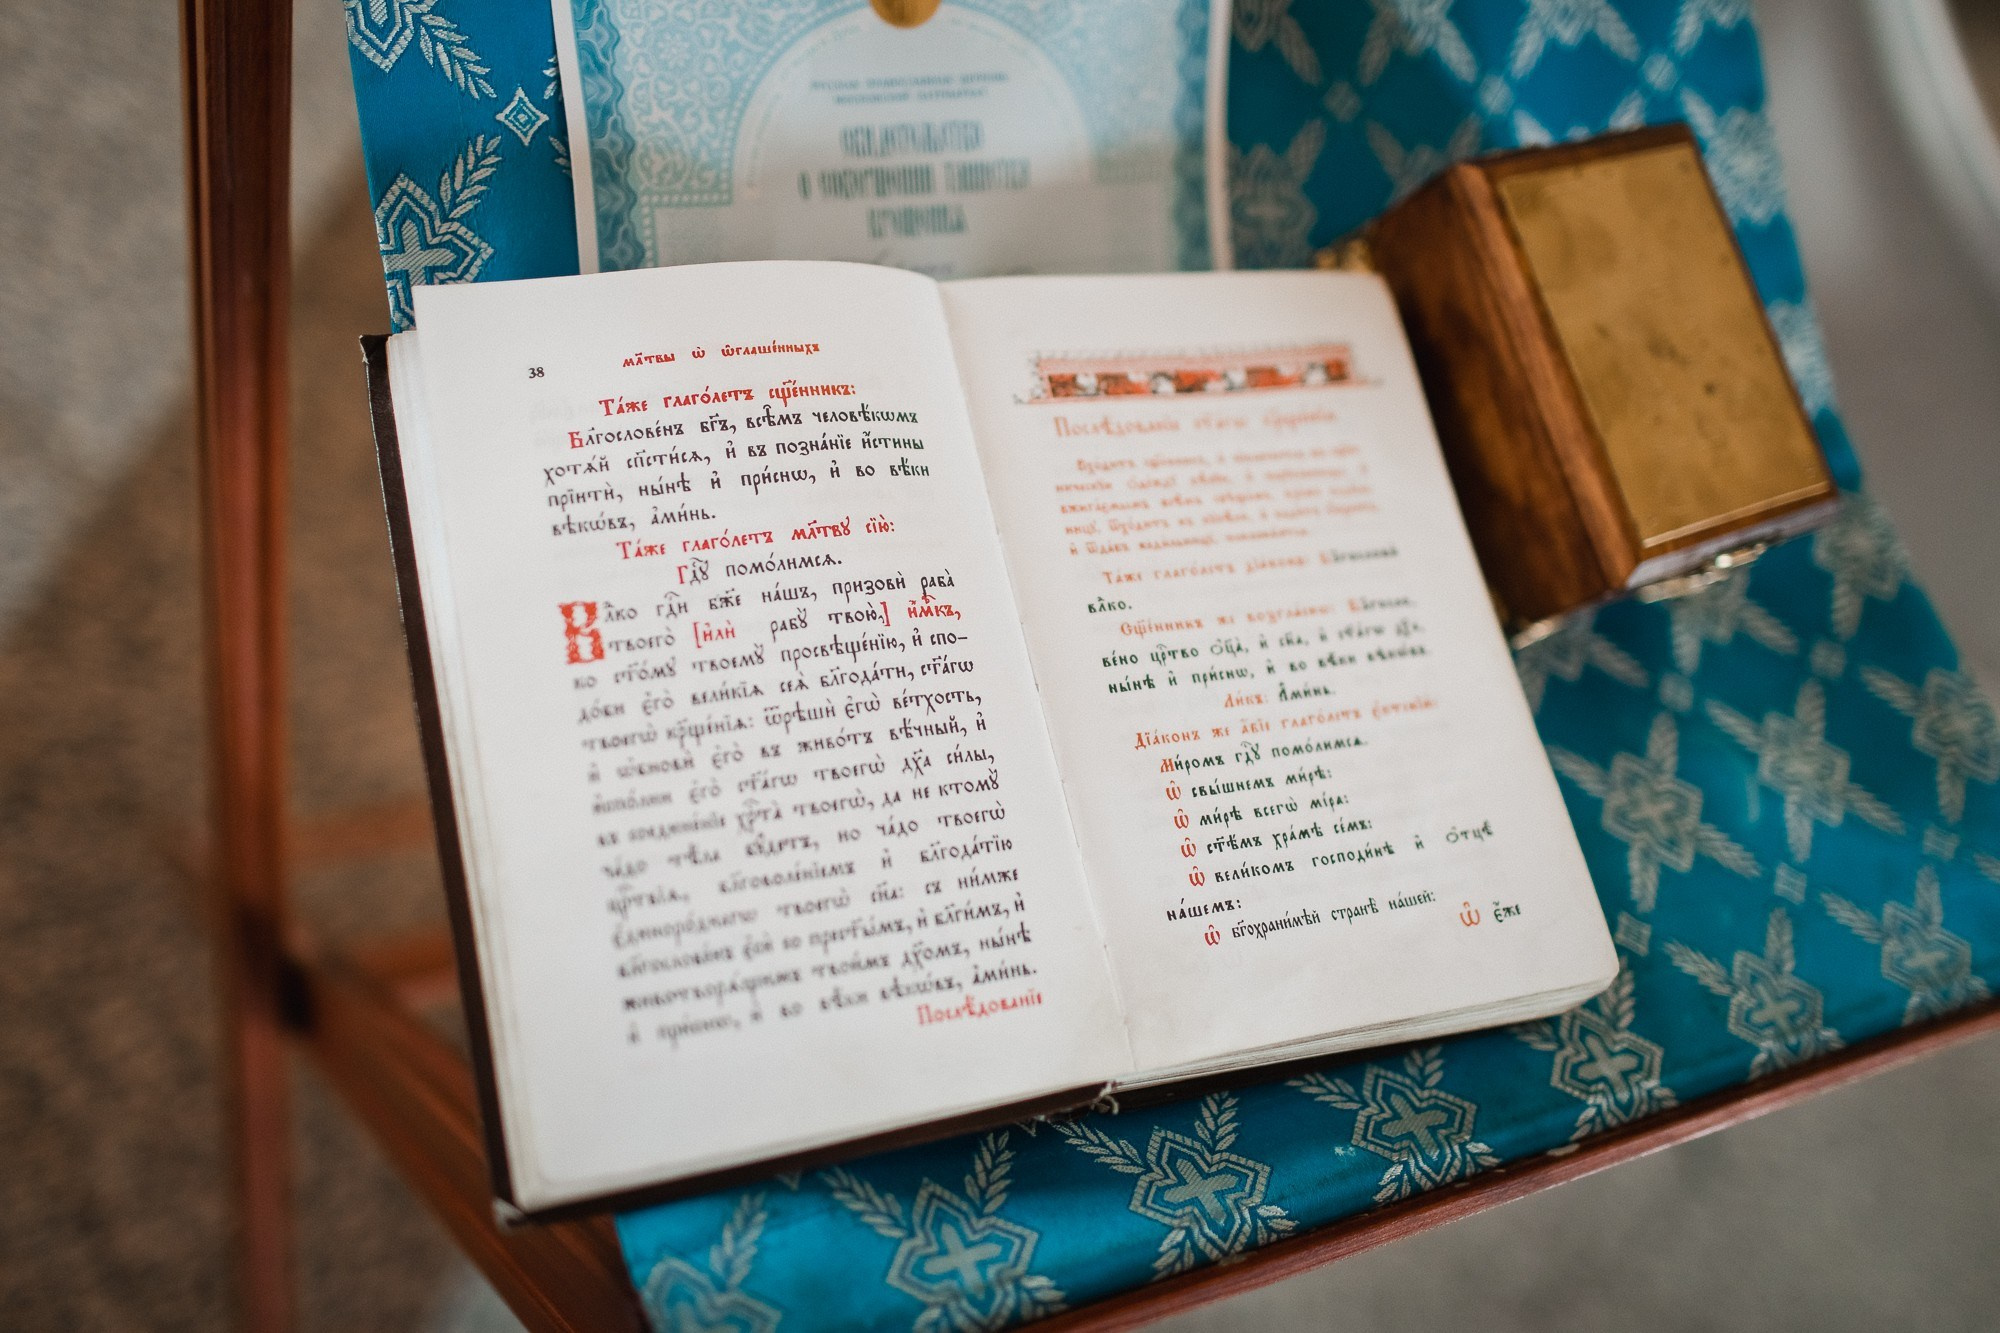 РУССКАЯ ПРАВОСЛАВНАЯ ЦЕРКОВЬ
МОСКОВСКИЙ ПАТРИАРХАТ
СВИДЕТЕЛЬСТВО
О СОВЕРШЕНИИ ТАИНСТВА
КРЕЩЕНИЯ
38
мл҃твы ѡ҆ ѡ҆глаше́нныхъ
Та́же глаго́летъ сщ҃е́нникъ:
Бл҃гослове́нъ бг҃ъ, всѣ̑мъ человѣ́кѡмъ
хотѧ́й сп҃сти́сѧ, и҆ въ позна́нїе и҆́стины
прїитѝ, ны́нѣ и҆ при́снѡ, и҆ во вѣ́ки
вѣкѡ́въ, а҆ми́нь.
Та́же глаго́летъ мл҃твꙋ сїю̀:
Гдⷭ҇ꙋ помо́лимсѧ.
Влⷣко гдⷭ҇и бж҃е на́шъ, призовѝ раба̀
твоего̀ [и҆лѝ рабꙋ̀ твою̀,] и҆́м҃къ,
ко ст҃о́мꙋ твоемꙋ̀ просвѣще́нїю, и҆ спо-
до́би є҆го̀ вели́кїѧ сеѧ̀ бл҃года́ти, ст҃а́гѡ
твоегѡ̀ кр҃ще́нїѧ: ѿрѣшѝ є҆гѡ̀ ве́тхость,
и҆ ѡ҆бновѝ є҆го̀ въ живо́тъ вѣ́чный, и҆
и҆спо́лни є҆го̀ ст҃а́гѡ твоегѡ̀ дх҃а си́лы,
въ соедине́нїе хрⷭ҇та̀ твоегѡ̀, да не ктомꙋ̀
ча́до тѣ́ла бꙋ́детъ, но ча́до твоегѡ̀
црⷭ҇твїѧ, бл҃говоле́нїемъ и҆ бл҃года́тїю
є҆диноро́днагѡ твоегѡ̀ сн҃а: съ ни́мже
бл҃гослове́нъ є҆сѝ со прест҃ы́мъ, и҆ бл҃ги́мъ, и҆
животворѧ́щимъ твои́мъ дх҃омъ, ны́нѣ
и҆ при́снѡ, и҆ во вѣ́ки вѣкѡ́въ, а҆ми́нь.
Послѣ́дованїе
Послѣ́дованїе ст҃а́гѡ кр҃ще́нїѧ.
Та́же глаго́летъ дїа́конъ: Бл҃гословѝ
влⷣко.
Сщ҃е́нникъ же возглаша́етъ: Бл҃госло-
ве́но црⷭ҇тво ѻ҆ц҃а̀, и҆ сн҃а, и҆ ст҃а́гѡ дх҃а,
ны́нѣ и҆ при́снѡ, и҆ во вѣ́ки вѣкѡ́въ.
Ли́къ: А҆ми́нь.
Дїа́конъ же а҆́бїе глаго́летъ є҆ктенїю̀:
Ми́ромъ гдⷭ҇ꙋ помо́лимсѧ.
Ѡ҆ свы́шнемъ ми́рѣ:
Ѡ҆ ми́рѣ всегѡ̀ мі́ра:
Ѡ҆ ст҃ѣ́мъ хра́мѣ се́мъ:
Ѡ҆ вели́комъ господи́нѣ и҆ ѻ҆тцѣ̀
на́шемъ:
Ѡ҆ бг҃охрани́мѣй странѣ̀ на́шей:
Ѡ҆ є҆́же